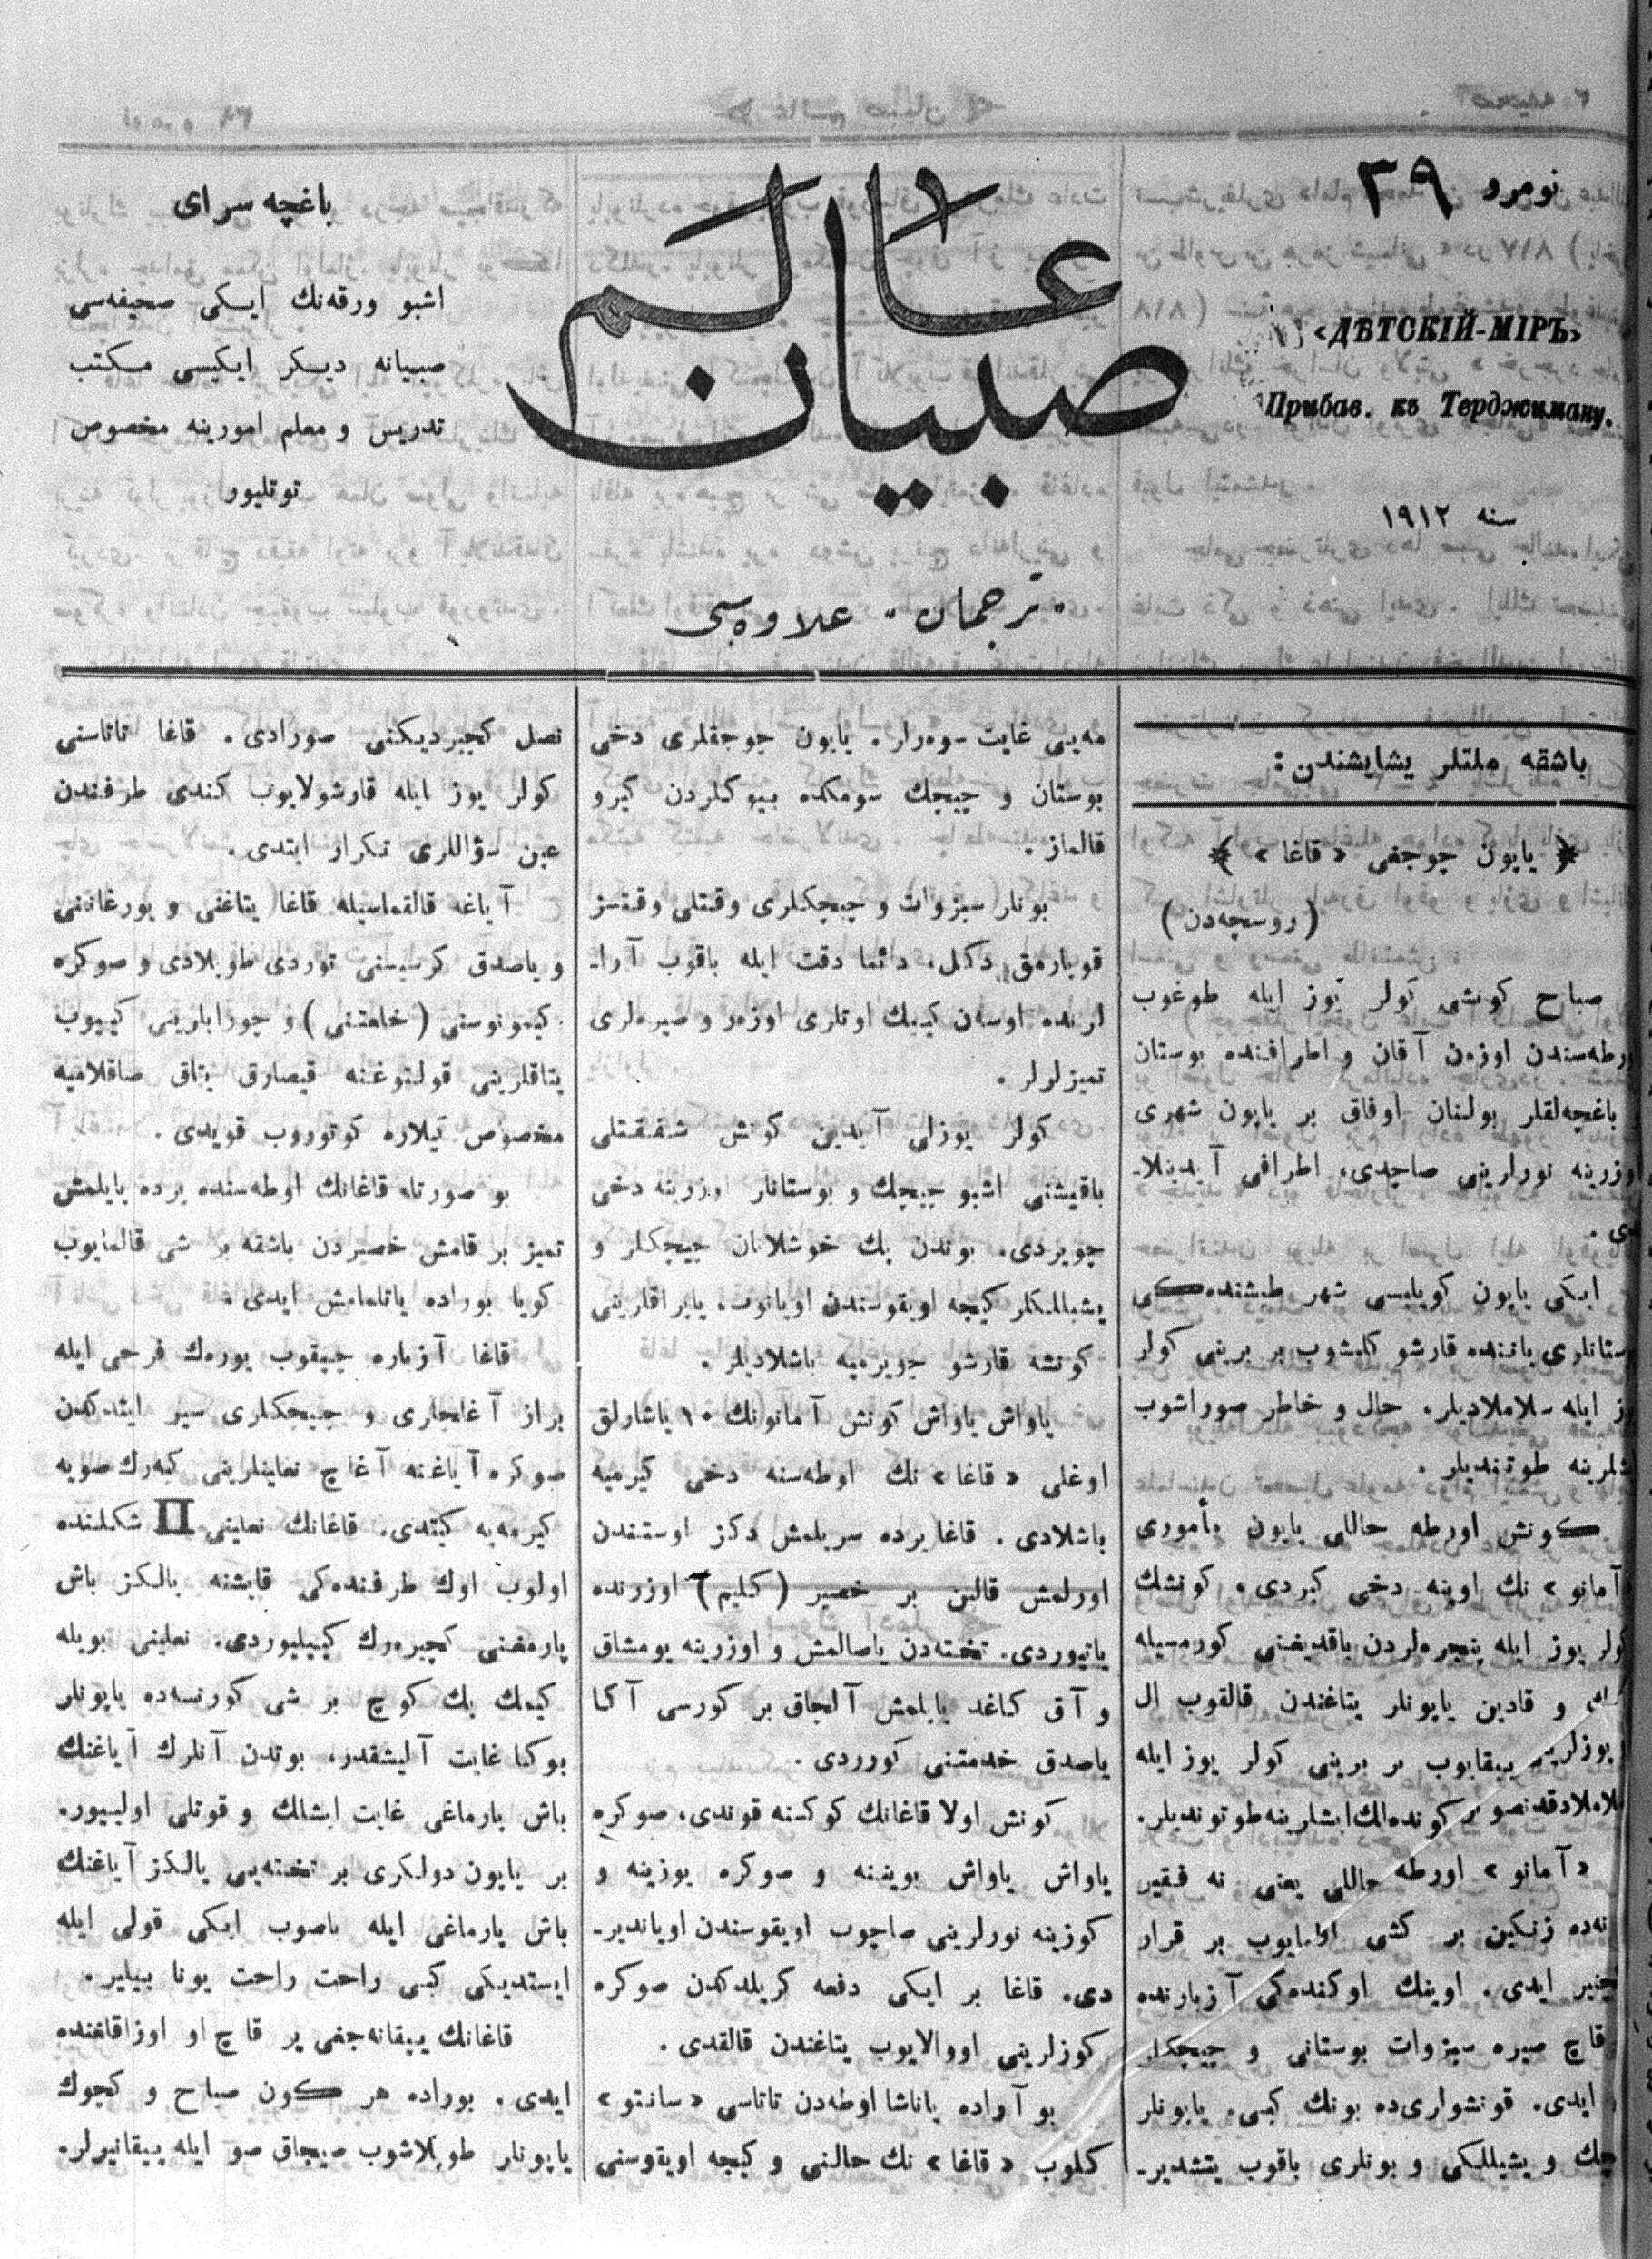 نومرو ٣٩
«ДѢТСКІЙ-МІРЪ»
Прибав. къ Терджиману.
سنه ١٩١٢
عالم
صبيان
ترجمان علاوه‌سى
باغچه سراى
اشبو ورقه‌نك ايكى صحيفه‌سى
صبيانه ديكر ايكيسى مكتب
تدريس و معلم امورينه مخصوص
توتليور
باشقه ملتلر يشايشندن:
﴿ ياپون چوجغى «قاغا» ﴾
(روسچه‌دن)
صباح كونشى كولر يوز ايله طوغوب
رطه‌سندن اوزه‌ن آقان و اطرافنده بوستان
باغچه‌لقلر بولنان اوفاق بر ياپون شهرى
وزرينه نورلرينى صاچدى، اطرافى آيدينلا-
دى.
ايكى ياپون كويليسى شهر طيشنده‌كى
ستانلرى ياننده قارشو كلشوب بر برينى كولر
ز ايله سلاملاديلر، حال و خاطر صوراشوب
شلرينه طوتنديلر.
كونش اورطه حاللى ياپون مأمورى
«آمانو» نك اوينه دخى كيردى. كونشك
كولر يوز ايله پنجره‌لردن باقديغنى كورمسيله
و قادين ياپونلر يتاغندن قالقوب ال
يوزلرينى ييقايوب بر برينى كولر يوز ايله
لاملادقدنصوكر كونده‌لك ايشلرينه طوتونديلر.
«آمانو» اورطه حاللى يعنى نه فقير
نه‌ده زنكين بر كشى اولمايوب بر قرار
چنير ايدى. اوينك اوكنده‌كى آزبارنده
قاچ صيره سبزوات بوستانى و چيچكلر
ايدى. قونشوارى‌ده بونك كبى. ياپونلر
چك و يشيللكى و بونلرى باقوب يتشدير-
مه‌يى غايت سوه‌رلر. ياپون چوجقلرى دخى
بوستان و چيچك سومكده بيوكلردن كيرو
قالماز.
بونلر سبزوات و چيچكلرى وقتلى وقتسز
قوپارمق دكل، دائما دقت ايله باقوب آرا-
لرنده اوسه‌ن كييك اوتلرى اوزه‌ر و صيره‌لرى
تميزلرلر.
كولر يوزلى آيدين كونش شفقتلى
باقيشنى اشبو چيچك و بوستانلر اوزرينه دخى
چويردى. بوندن پك خوشلانان چيچكلر و
يشيللكلر كيجه اويقوسندن اويانوب، ياپراقلرينى
كونشه قارشو چويرميه باشلاديلر.
ياواش ياواش كونش آمانونك ١٠ ياشارلق
اوغلى «قاغا» نك اوطه‌سنه دخى كيرميه
باشلادى. قاغا يرده سريلمش دكز اوستندن
اورلمش قالين بر خصير (كليم) اوزرنده
ياتيوردى. تخته‌دن ياصالمش و اوزرينه يومشاق
و آق كاغد ياپلمش آلچاق بر كورسى آكا
ياصدق خدمتنى كورردى.
كونش اولا قاغانك كوكسنه قوندى، صوكره
ياواش ياواش بويننه و صوكره يوزينه و
كوزينه نورلرينى صاچوب اويقوسندن اوياندير-
دى. قاغا بر ايكى دفعه كريلدكدن صوكره
كوزلرينى اووالايوب يتاغندن قالقدى.
بو آراده ياناشا اوطه‌دن تاتاسى «سانتو»
كلوب «قاغا» نك حالنى و كيجه اويقوسنى
نصل كچيرديكنى صورادى. قاغا تاتاسنى
كولر يوز ايله قارشولايوب كندى طرفندن
عين سؤاللرى تكرار ايتدى.
آياغه قالقماسيله قاغا يتاغنى و يورغاننى
و ياصدق كرسيسنى توردى طوپلادى و صوكره
كيمونوسنى (خلعتنى) و چوراپلرينى كييوب
يتاقلرينى قولتوغنه قيصارق يتاق صاقلاميه
مخصوص كيلاره كوتوروب قويدى.
بو صورتله قاغانك اوطه‌سنده يرده يايلمش
تميز بر قامش خصيردن باشقه بر شى قالمايوب
كويا بوراده ياتلمامش ايدى.
قاغا آزباره چيقوب يوره‌ك فرحى ايله
براز آغاجلرى و چيچكلرى سير ايتدكدن
صوكره آياغنه آغاچ نعلينلرينى كيه‌رك صويه
كيرمه‌يه كيتدى. قاغانك نعلينى П شكلنده
اولوب اوك طرفنده‌كى قايشنه يالكز باش
پارمغنى كچيره‌رك كييليوردى. نعلينى بويله
كيمك پك كوچ بر شى كورنسه‌ده ياپونلر
بوكا غايت آليشقدر، بوندن آنلرك آياغنك
باش پارماغى غايت ايشلك و قوتلى اوليور.
بر ياپون دولكرى بر تخته‌يى يالكز آياغنك
باش پارماغى ايله باصوب ايكى قولى ايله
ايستديكى كبى راحت راحت يونا بيلير.
قاغانك ييقانه‌جغى ير قاچ او اوزاقلغنده
ايدى. بوراده هر كون صباح و كچوك
ياپونلر طوپلاشوب صيجاق صو ايله ييقانيرلر.